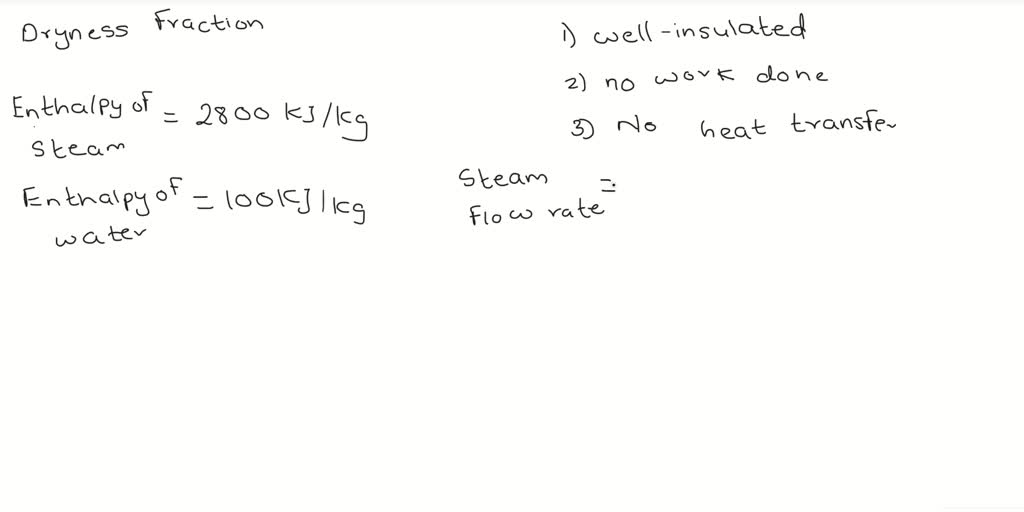 Dryness Fraction
Enthalpy of = 2800 KJ/kg
steam
Enthalpy of = 100KJ/kg
water
1) well-insulated
2) no work done
3) No heat transfer
Steam =
flow rate